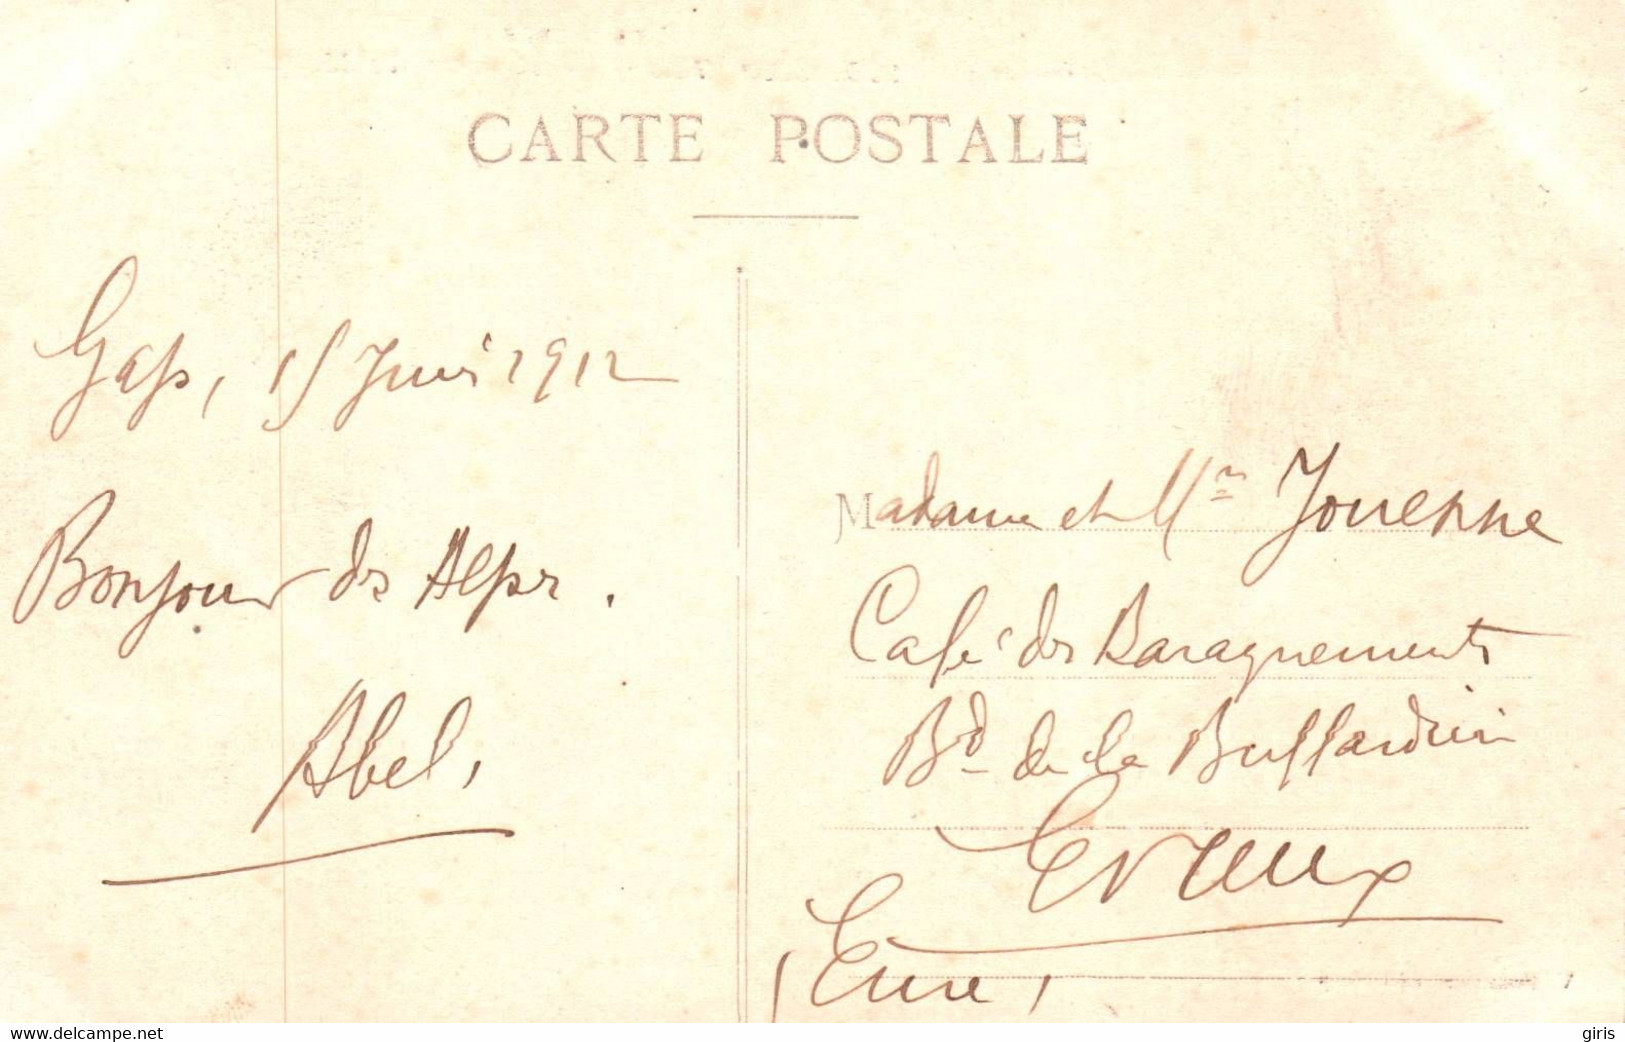 CARTE POSTALE
Gap, 15 Juin 1912
Bonjour des Alpes.
Abel,
Madame et Mr Jouenne
Café des Baraquements
Bd de la Buffardière
Evreux
(Eure)
www.delcampe.net
giris